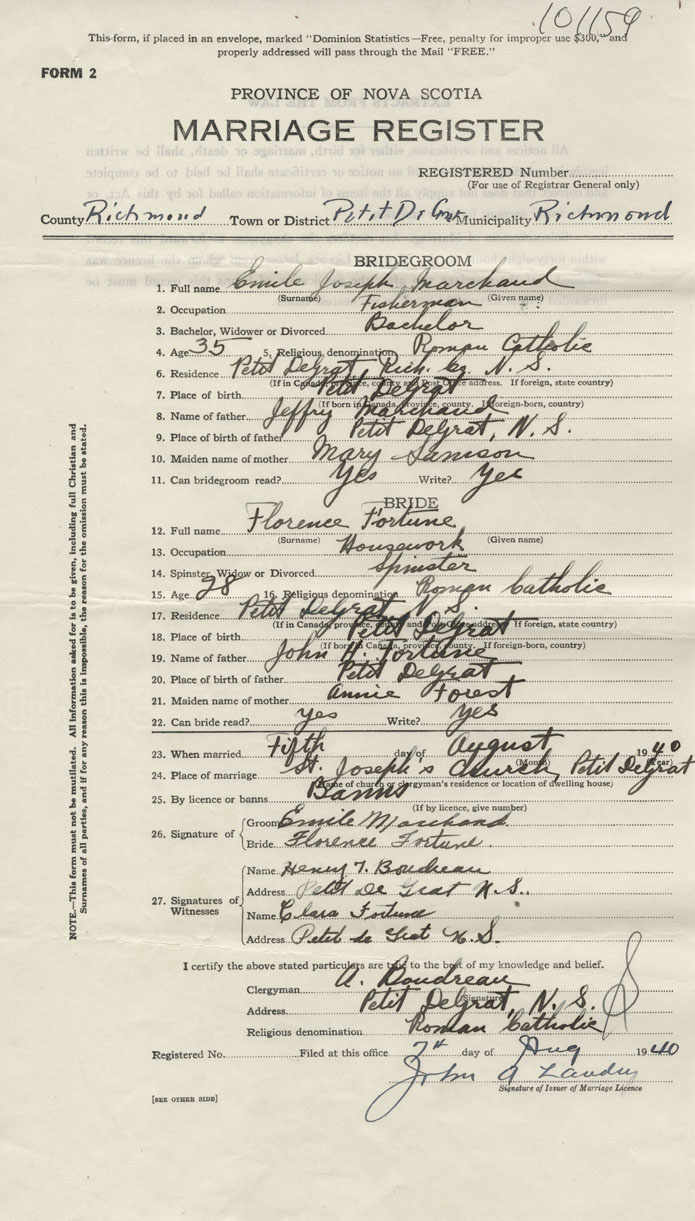 101159
This form, if placed in an envelope, marked "Dominion Statistics—Free, penalty for improper use $300," and
properly addressed will pass through the Mail "FREE."
FORM 2
PROVINCE OF NOVA SCOTIA
MARRIAGE REGISTER
REGISTERED Number
(For use of Registrar General only)
County Richmond Town or District Petit De Grat Municipality Richmond
BRIDEGROOM
1. Full name Emile Joseph Marchand
(Surname) (Given name)
2. Occupation Fisherman
3. Bachelor, Widower or Divorced Bachelor
4. Age 35 5. Religious denomination Roman Catholic
6. Residence Petit Degrat Rich. Co. N. S.
(If in Canada, province, county and Post Office address. If foreign, state country)
7. Place of birth Petit Degrat
(If born in Canada, province, county. If foreign-born, country)
8. Name of father Jeffry Marchand
9. Place of birth of father Petit Degrat, N. S.
10. Maiden name of mother Mary Samson
11. Can bridegroom read? Yes Write? Yes
BRIDE
12. Full name Florence Fortune
(Surname) (Given name)
13. Occupation Housework
14. Spinster, Widow or Divorced Spinster
15. Age 28 16. Religious denomination Roman Catholic
17. Residence Petit Degrat N S.
(If in Canada, province, county and Post Office address. If foreign, state country)
18. Place of birth Petit Degrat
(If born in Canada, province, county. If foreign-born, country)
19. Name of father John Fortune
20. Place of birth of father Petit Degrat
21. Maiden name of mother Annie Forest
22. Can bride read? yes Write? yes
23. When married Fifth day of August 1940
(Month) (Year)
24. Place of marriage St. Joseph's Church, Petit Degrat
(Name of church or clergyman's residence or location of dwelling house)
25. By licence or banns Banns
(If by licence, give number)
26. Signature of Groom Emile Marchand
Bride Florence Fortune
27. Signatures of Witnesses
Name Henry T. Boudreau
Address Petit De Grat N.S.
Name Clara Fortune
Address Petit de Grat N.S.
I certify the above stated particulars are true to the best of my knowledge and belief.
Clergyman A. Boudreau
(Signature)
Address Petit Degrat, N. S.
Religious denomination Roman Catholic
Registered No. Filed at this office 7th day of Aug 1940
John A Landry
Signature of Issuer of Marriage Licence
[SEE OTHER SIDE]
NOTE.—This form must not be mutilated. All information asked for is to be given, including full Christian and
Surnames of all parties, and if for any reason this is impossible, the reason for the omission must be stated.